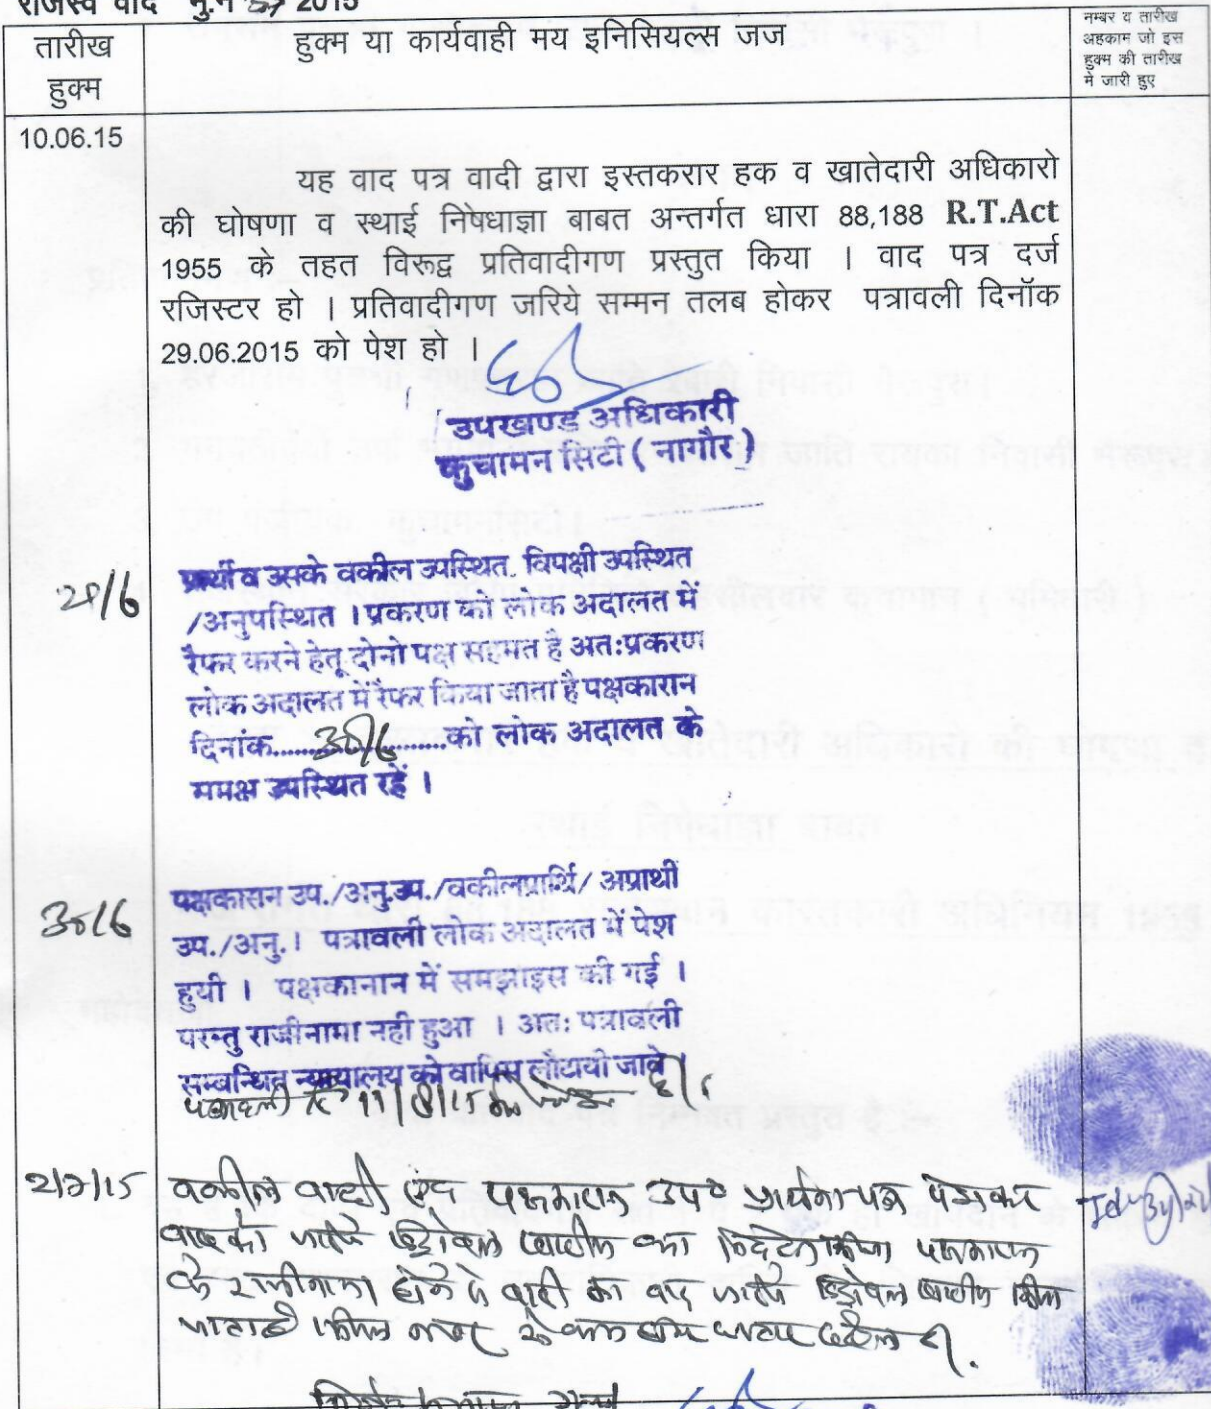 राजस्व वाद मु.न 57 2015
तारीख हुक्म
हुक्म या कार्यवाही मय इनिसियल्स जज
नम्बर व तारीख
अहकाम जो इस
हुक्म की तारीख
मे जारी हुए
10.06.15
यह वाद पत्र वादी द्वारा इस्तकरार हक व खातेदारी अधिकारो
की घोषणा व स्थाई निषेधाज्ञा बाबत अन्तर्गत धारा 88,188 R.T.Act
1955 के तहत विरूद्व प्रतिवादीगण प्रस्तुत किया । वाद पत्र दर्ज
रजिस्टर हो । प्रतिवादीगण जरिये सम्मन तलब होकर पत्रावली दिनॉक
29.06.2015 को पेश हो ।
उपखण्ड अधिकारी
कुचामन सिटी ( नागौर )
29/6
प्रार्थी व उसके वकील उपस्थित. विपक्षी उपस्थित
/अनुपस्थित । प्रकरण को लोक अदालत में
रैफर करने हेतू दोनो पक्ष सहमत है अतःप्रकरण
लोक अदालत में रैफर किया जाता है पक्षकारान
दिनांक.....30/6.....को लोक अदालत के
समक्ष उपस्थित रहें ।
30/6
पक्षकारान उप./अनु.उप./वकीलप्रार्थि/ अप्रार्थी
उप./अनु.। पत्रावली लोक अदालत में पेश
हुयी । पक्षकानान में समझाइस की गई ।
परन्तु राजीनामा नही हुआ । अतः पत्रावली
सम्बन्धित न्यायालय को वापिस लौटायी जावे ।
पत्रावली 11/8/15 को
2/7/15
वकील वादी एवं पक्षकारान उप० प्रार्थना पत्र पेश कर
वाद को जरिये विड्रोवल खारीज का निवेदन किया पक्षकारान
के राजीनामा होने से वादी का वाद जरिये विड्रोवल खारीज किया
जाता है